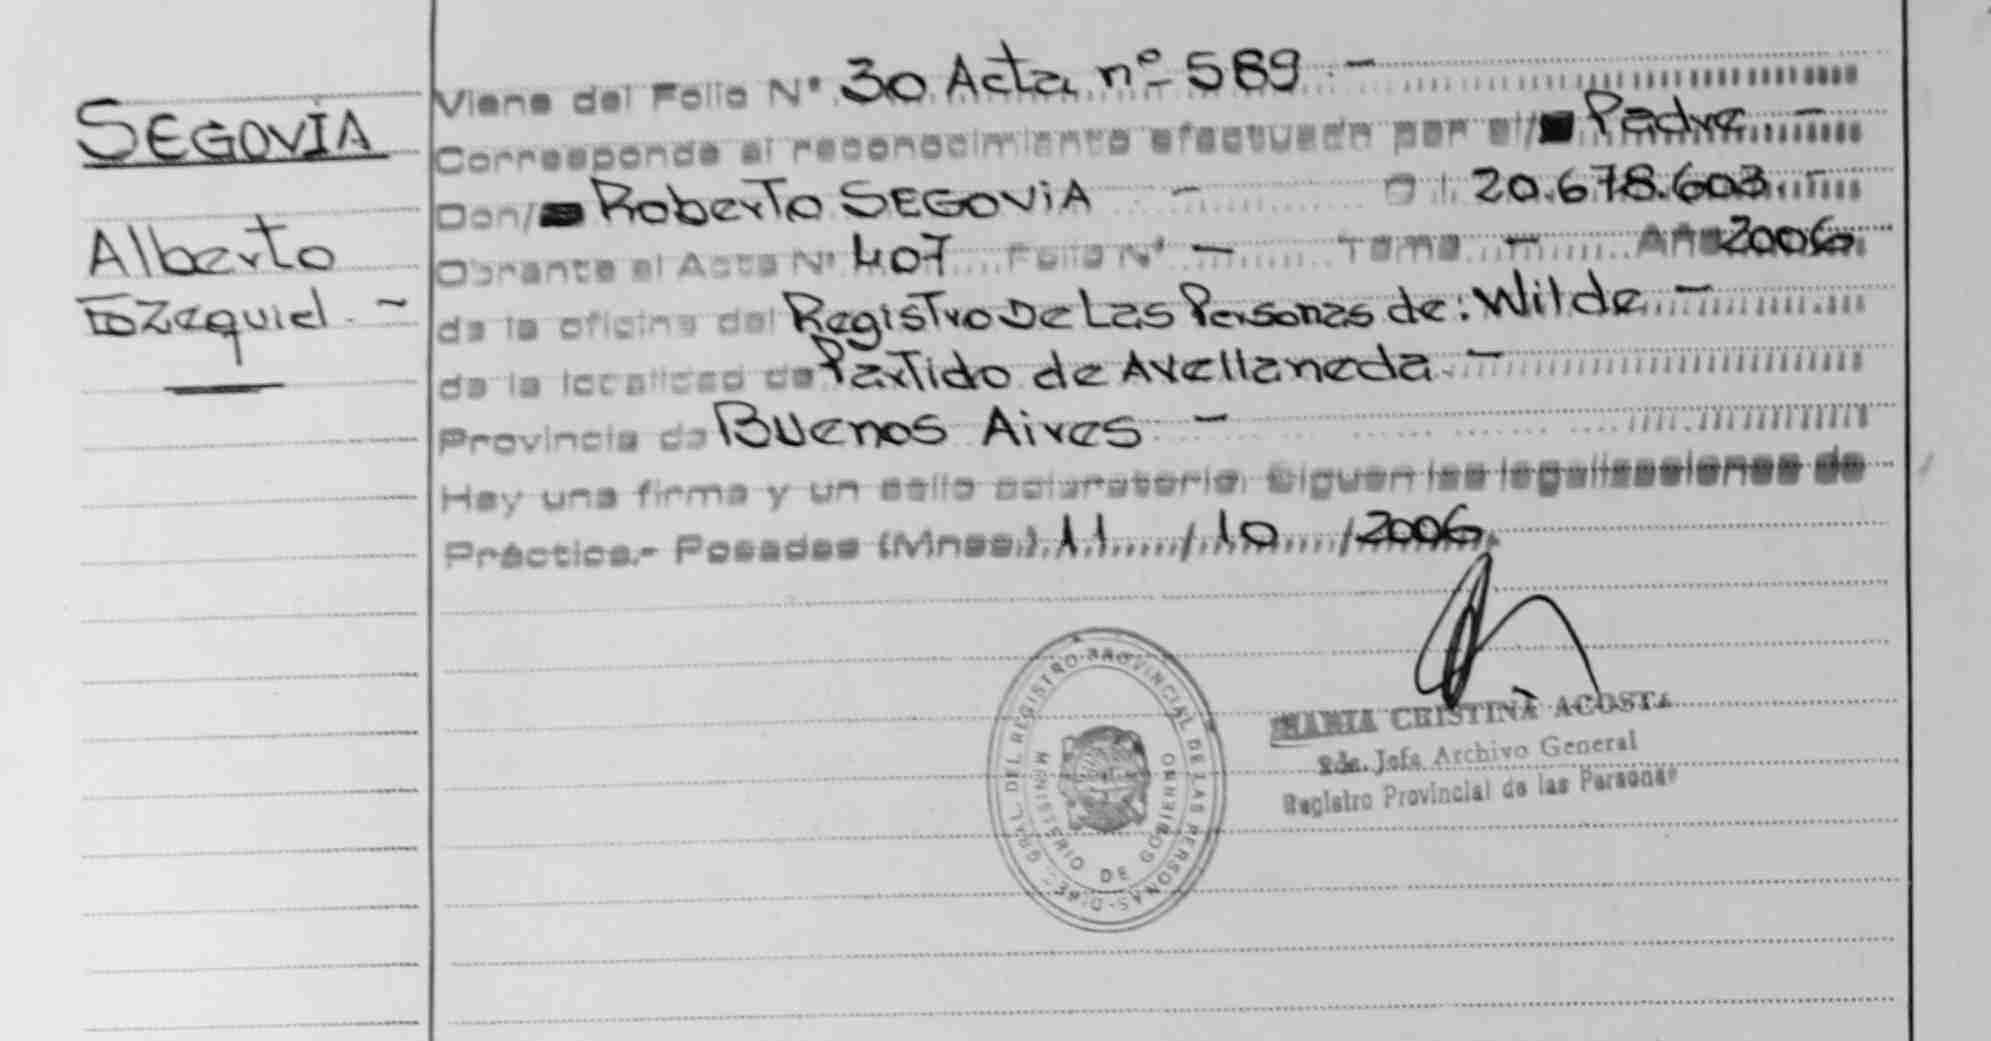 SEGOVIA
Alberto
Ezequiel. -
Viene del Folio N° 30 Acta nº 589.-
Corresponde al reconocimiento efectuado por el/ Padre -
Don/ Roberto SEGOViA - D I. 20.678.603
Obrante al Acta N° 407 Folio N° - Tomo - Año 2006
de la oficina del Registro De Las Personas de: Wilde -
de la localidad de Partido de Avellaneda. -
Provincia de Buenos Aires -
Hay una firma y un sello aclaratorio. Siguen las legalizaciones de
Práctica.- Posadas (Mnes.) 11 / 10 / 2006
DIREC. GRAL. DEL REGISTRO PROVINCIAL DE LAS PERSONAS
MINISTERIO DE GOBIERNO
MARIA CRISTINA ACOSTA
2da. Jefa Archivo General
Registro Provincial de las Personas